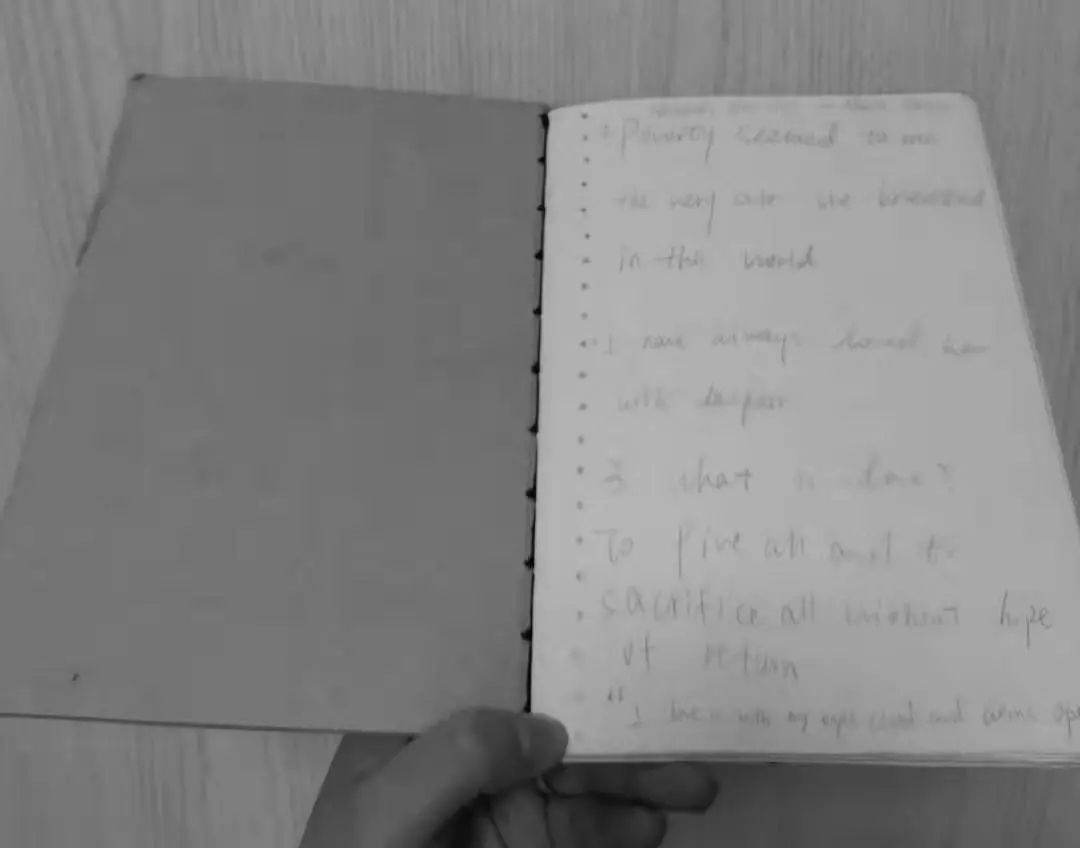 Poverty seemed to me
the very air we breathed
in this world
"I have always loved
with despair
3 what is love?
To give all and to
sacrifice all without hope
of return
"I love with my eyes and arms ope